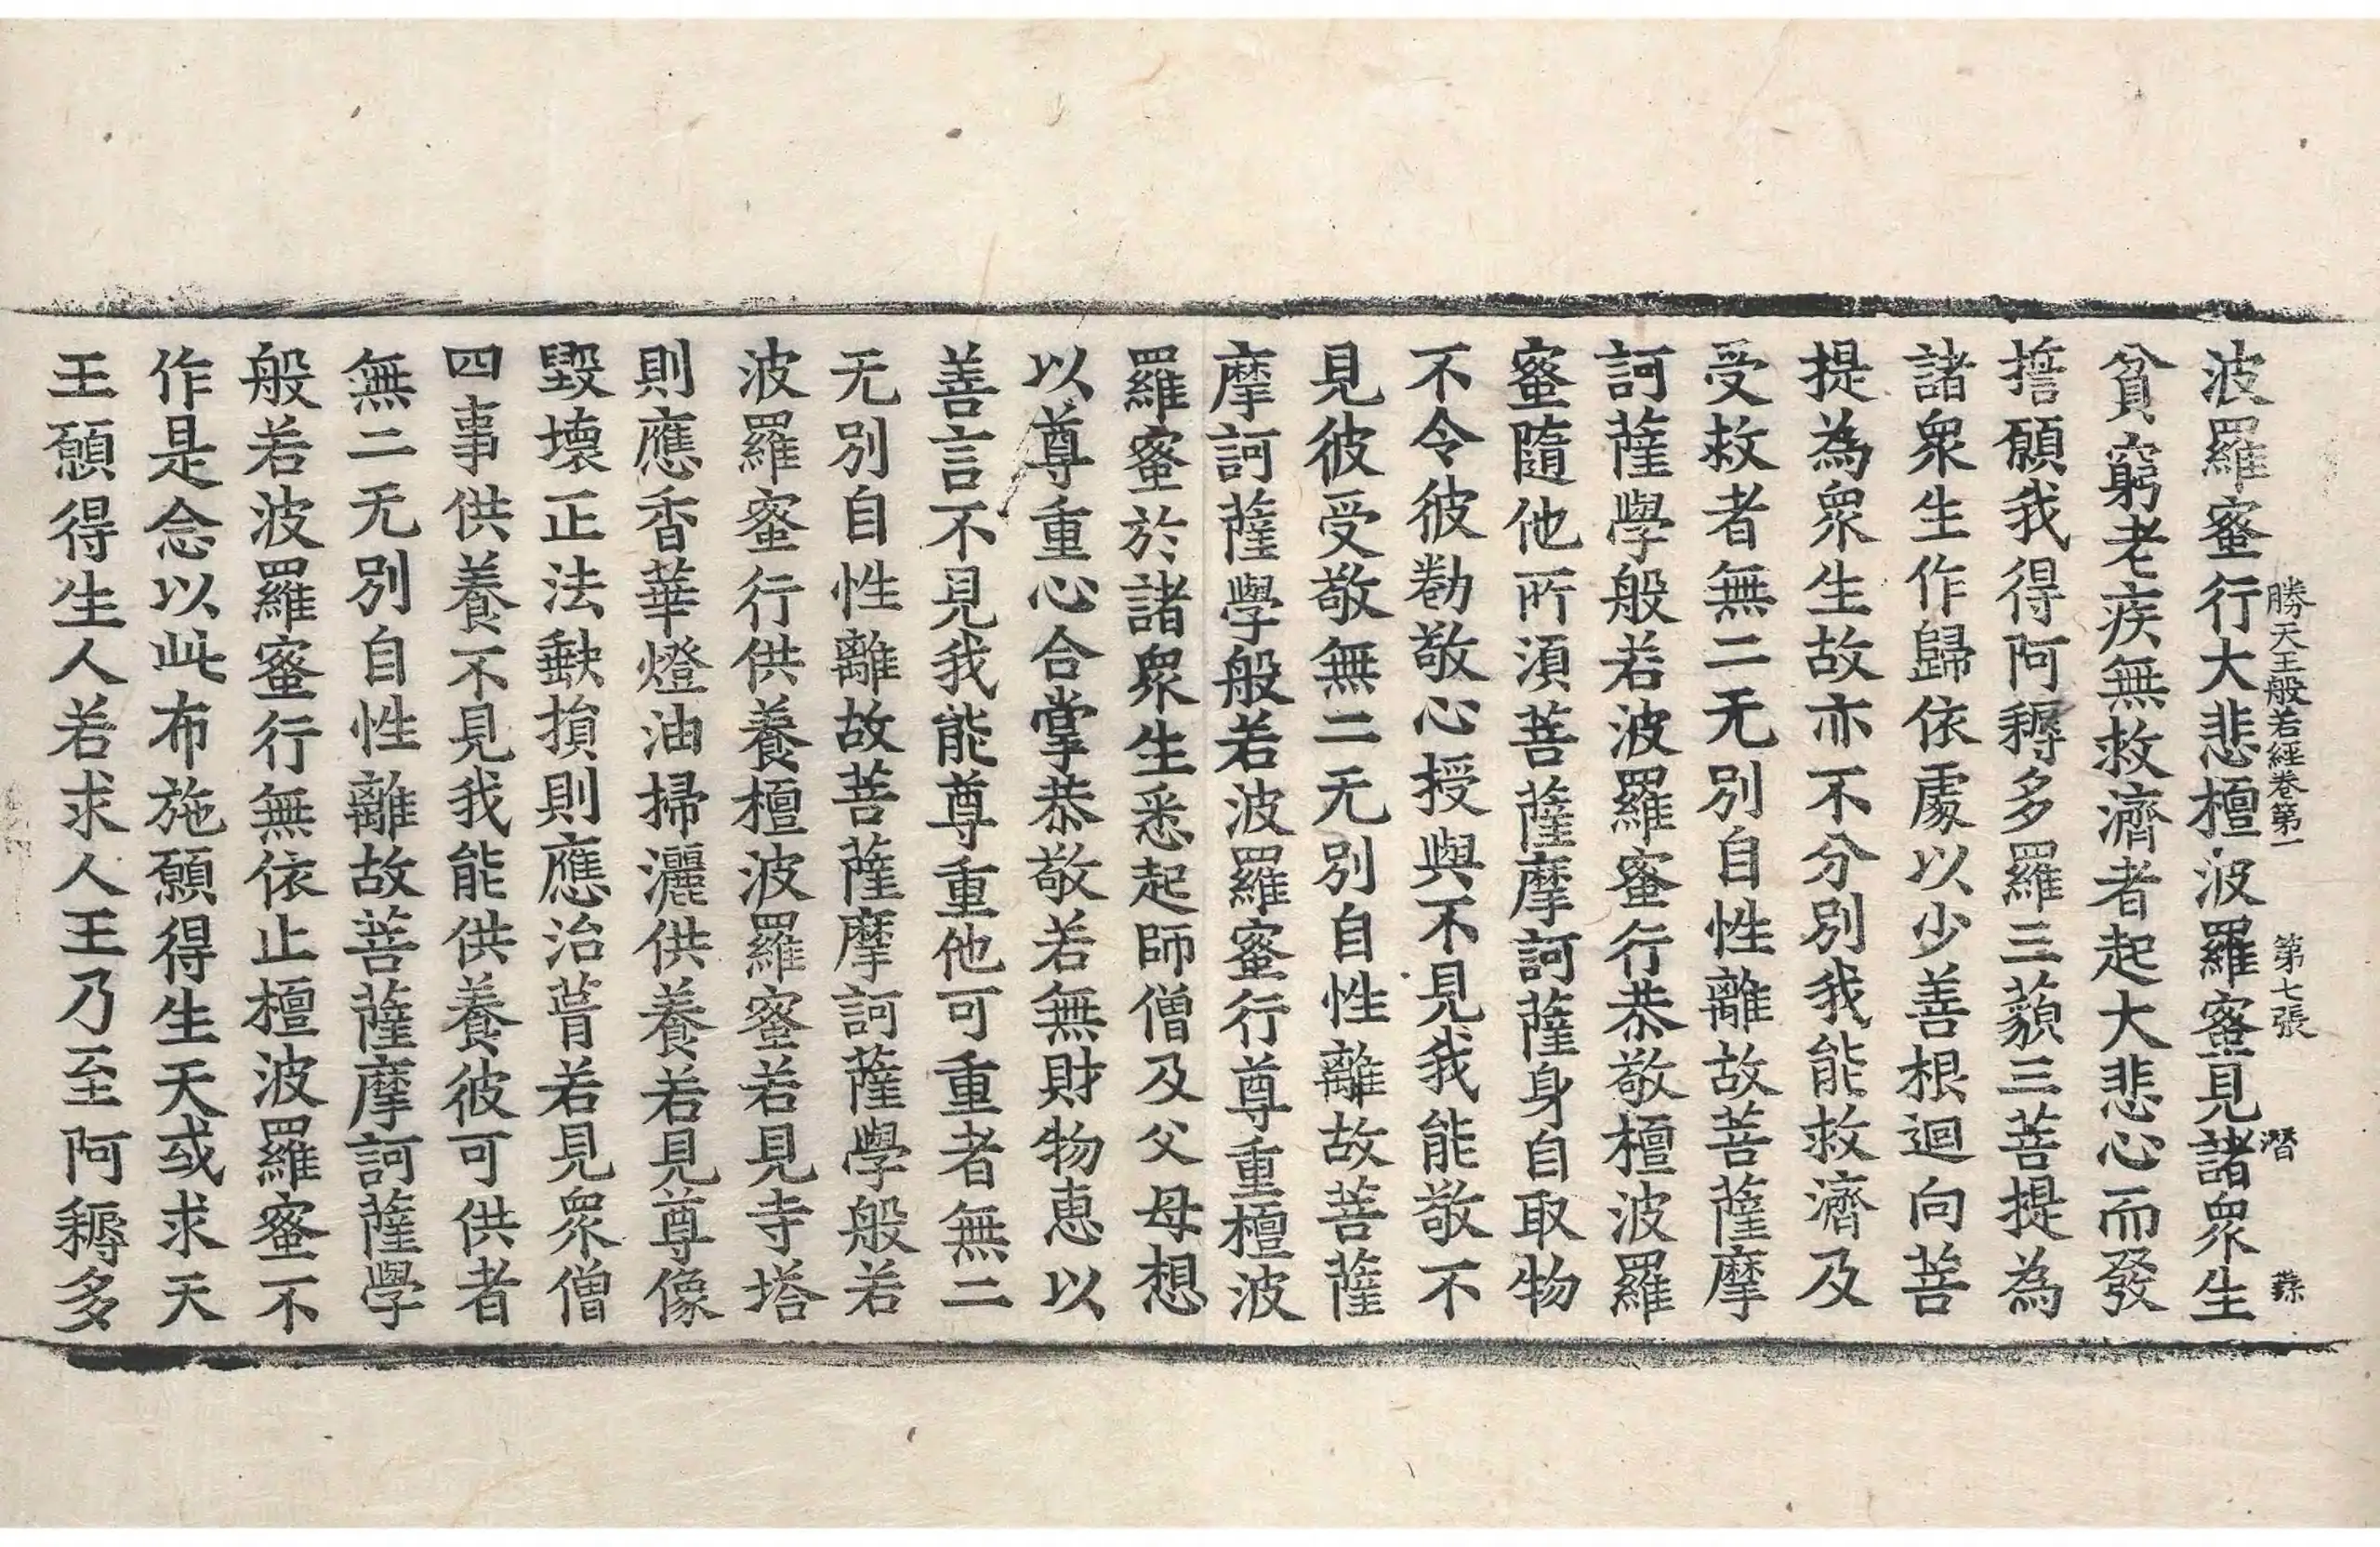 勝天王般若經卷第一　第七張　潛
波羅蜜行大悲檀波羅蜜見諸衆生
貧窮老疾無救濟者起大悲心而發
擔願我得阿耨多羅三藐三菩提為
諸衆生作歸依處以少善根迴向菩
提為衆生故亦不分別我能救濟及
受救者無二无別自性離故菩薩摩
訶薩學般若波羅蜜行恭敬檀波羅
蜜隨他所湏菩薩摩訶薩身自取物
不令彼勌敬心授與不見我能敬不
見彼受敬無二无別自性離故菩薩
摩訶薩學般若波羅蜜行尊重檀波
羅蜜於諸衆生悉起師僧及父母想
以尊重心合掌恭敬若無財物惠以
善言不見我能尊重他可重者無二
无別自性離故菩薩摩訶薩學般若
波羅蜜行供養檀波羅蜜若見寺塔
則應香華燈油掃灑供養若見尊像
毀壞正法缺損則應治葺若見衆僧
四事供養不見我能供養彼可供者
無二无別自性離故菩薩摩訶薩學
般若波羅蜜行無依止檀波羅蜜不
作是念以此布施願得生天或求天
王願得生人若求人王乃至阿耨多